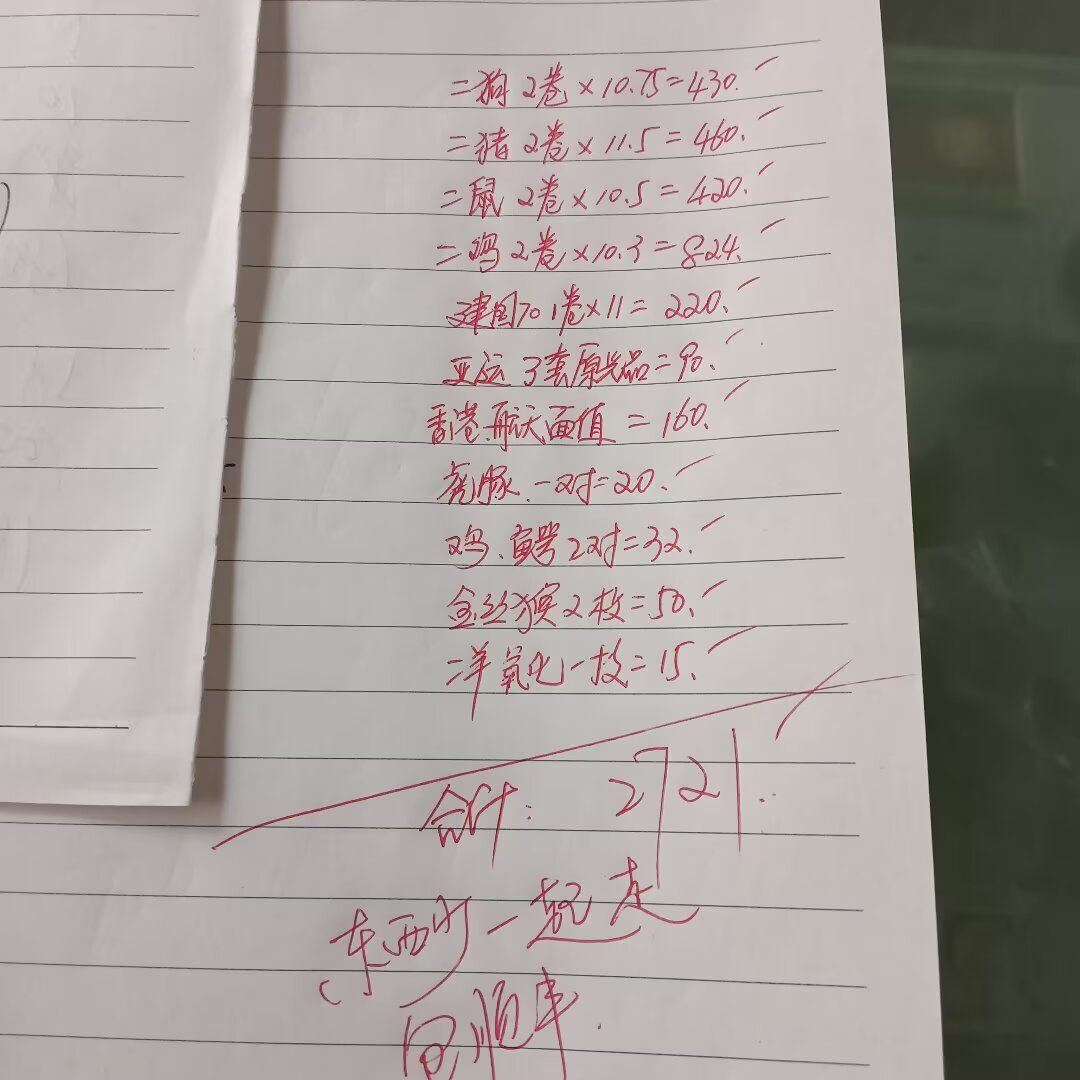 二狗2卷×10.75=430.
二猪2卷×11.5=460.
二鼠2卷×10.5=420.
二鸡2卷×10.3=824.
建国70 1卷×11=220.
亚运3套原光品=90.
香港.航天面值=160.
虎豚.一对=20.
鸡、鱼鳄2对=32.
金丝猴2枚=50.
二羊氧化一枚=15.
合计:2721.
东西少一起走
包顺丰.